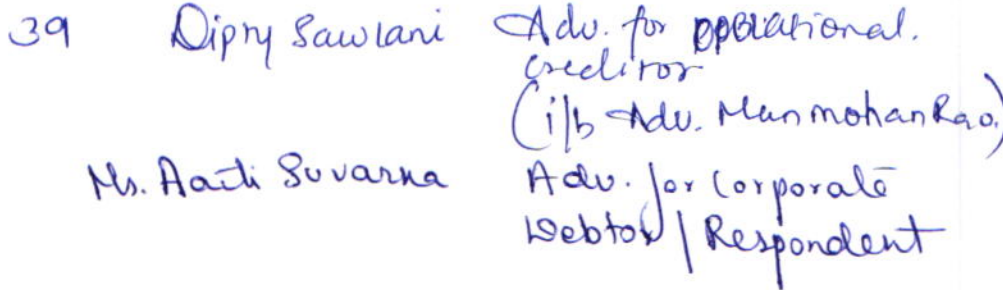 39 Dipry Sawlani Adv. for operational.
creditor
(i/b Adv. Manmohan Rao.)
Ms. Aarti Suvarna Adv. for Corporate
Debtor / Respondent